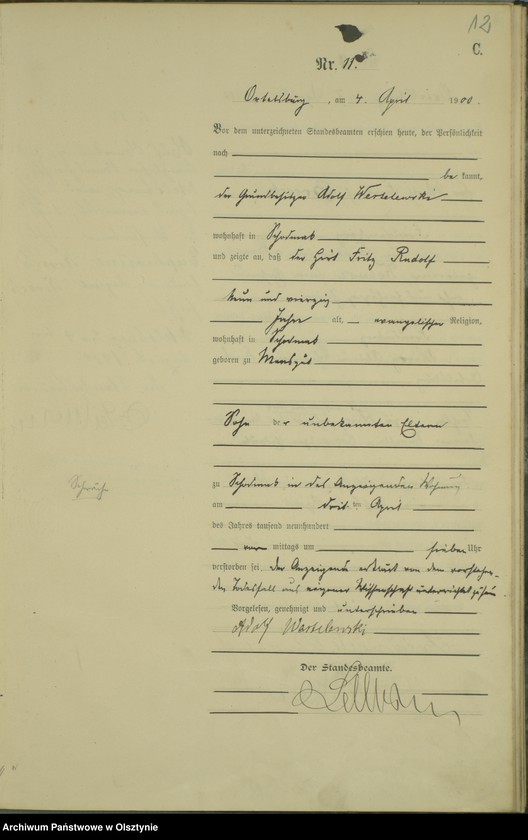 12
C.
Nr. 11.
Ortelsburg, am 4. April 1900.
Vor dem unterzeichneten Standesbeamten erschien heute, der Persönlichkeit
nach
be kannt,
der Grundbesitzer Adolf Westelewski
wohnhaft in Schodmak
und zeigte an, daß der Hirt Fritz Rudolf
neun und vierzig
Jahre alt, evangelischer Religion,
wohnhaft in Schodmak
geboren zu Mensguth
Sohn der unbekannten Eltern
zu Schodmak in des Anzeigenden Wohnung
am dritten April
des Jahres tausend neunhundert
vor mittags um sieben Uhr
verstorben sei. Der Anzeigende erklärt von dem vorstehen-
den Todesfall aus eigener Wissenschaft unterrichtet zu sein.
Vorgelesen, genehmigt und unterschrieben
Adolf Wastelewski
Der Standesbeamte.
Archiwum Państwowe w Olsztynie